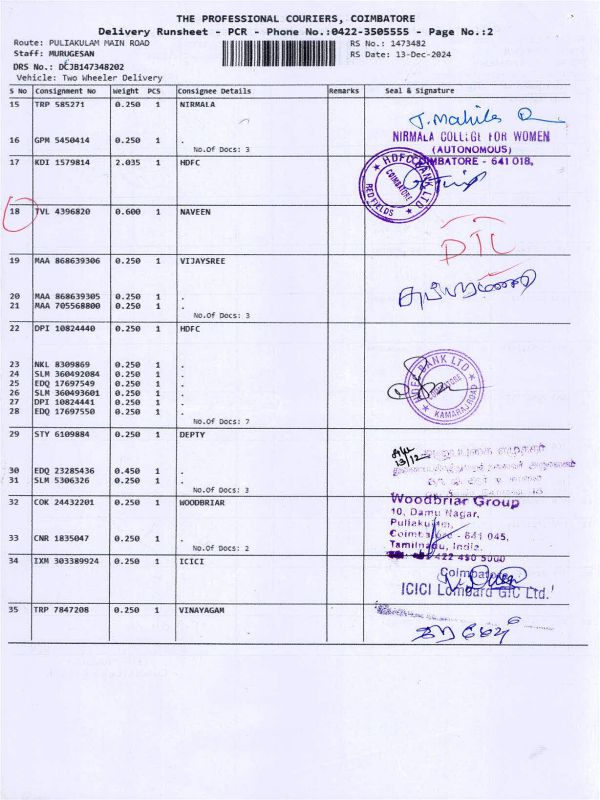 THE PROFESSIONAL COURIERS, COIMBATORE
Delivery Runsheet - PCR - Phone No.:0422-3505555 - Page No.:2
Route: PULIAKULAM MAIN ROAD RS No.: 1473482
Staff: MURUGESAN RS Date: 13-Dec-2024
DRS No.: DCJB147348202
Vehicle: Two Wheeler Delivery
S No Consignment No Weight PCS Consignee Details Remarks Seal & Signature
15 TRP 585271 0.250 1 NIRMALA
16 GPM 5450414 0.250 1 .
No.Of Docs: 3
NIRMALA COLLEGE FOR WOMEN
(AUTONOMOUS)
COIMBATORE - 641 018.
17 KDI 1579814 2.035 1 HDFC
HDFC BANK LTD
COIMBATORE
RED FIELDS
18 TVL 4396820 0.600 1 NAVEEN
DTL
19 MAA 868639306 0.250 1 VIJAYSREE
20 MAA 868639305 0.250 1 .
21 MAA 705568800 0.250 1 .
No.Of Docs: 3
22 DPI 10824440 0.250 1 HDFC
23 NKL 8309869 0.250 1 .
24 SLM 360492084 0.250 1 .
25 EDQ 17697549 0.250 1 .
26 SLM 360493601 0.250 1 .
27 DPI 10824441 0.250 1 .
28 EDQ 17697550 0.250 1 .
No.Of Docs: 7
HDFC BANK LTD
COIMBATORE
KAMARAJ ROAD
29 STY 6109884 0.250 1 DEPTY
13/12
30 EDQ 23285436 0.450 1 .
31 SLM 5306326 0.250 1 .
No.Of Docs: 3
32 COK 24432201 0.250 1 WOODBRIAR
33 CNR 1835047 0.250 1 .
No.Of Docs: 2
Woodbriar Group
10, Damu Nagar,
Puliakulam,
Coimbatore - 641 045,
Tamilnadu, India.
422 490 5000
34 IXM 303389924 0.250 1 ICICI
Coimbatore
ICICI Lombard GIC Ltd.
35 TRP 7847208 0.250 1 VINAYAGAM